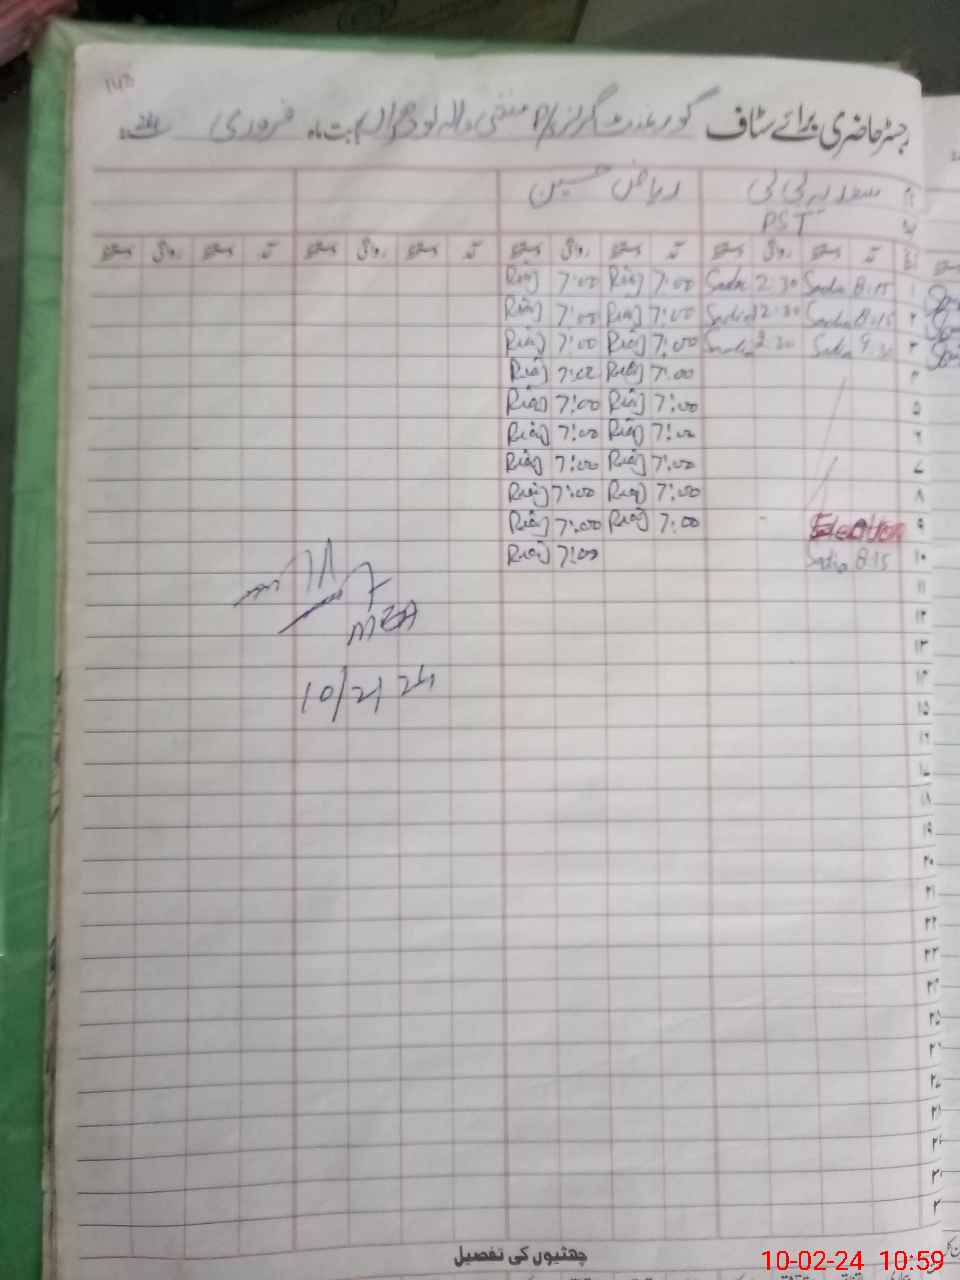 143
رجسٹر حاضری برائے سٹاف گورنمنٹ گرلز P/ والہ لودھراں بابت ماہ فروری 24
ریاض حسین
PST
آمد دستخط روانگی دستخط آمد دستخط روانگی دستخط آمد دستخط روانگی دستخط آمد دستخط روانگی دستخط
۱ 8:15 Sadia 2:30 Sadia 7:00 Riaz 7:00 Riaz
۲ 8:15 Sadia 2:30 Sadia 7:00 Riaz 7:00 Riaz
۳ Sadia 2:30 Sadia 7:00 Riaz 7:00 Riaz
۴ 7:00 Riaz 7:00 Riaz
۵ 7:00 Riaz 7:00 Riaz
۶ 7:00 Riaz 7:00 Riaz
۷ 7:00 Riaz 7:00 Riaz
۸ 7:00 Riaz 7:00 Riaz
۹ Election 7:00 Riaz 7:00 Riaz
۱۰ 8:15 Sadia 7:00 Riaz
۱۱
۱۲
۱۳
۱۴
۱۵
۱۶
۱۷
۱۸
۱۹
۲۰
۲۱
۲۲
۲۳
۲۴
۲۵
۲۶
۲۷
۲۸
۲۹
۳۰
MEA
10/2/24
چھٹیوں کی تفصیل
10-02-24 10:59